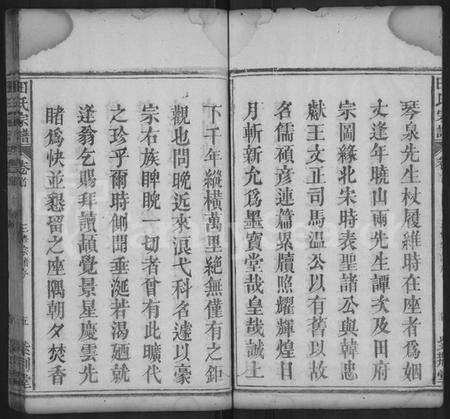 琴泉先生杖履維時在座者爲姻
丈逢年曉山兩先生譚次及田府
宗圖緣北宋時表聖諸公與韓忠
獻王文正司馬温公以有舊以故
名儒碩彦連篇累牘照耀輝煌日
月斬新允爲墨寶堂哉皇哉誠上
下千年縱横萬里絶無僅有之鉅
觀也問晩近來浪弋科名遽以豪
宗右族睥睨一切者曾有此曠代
之珍乎爾時側聞垂涎若渴廼就
逢翁乞賜拜讀頓覺景星慶雲先
睹爲快並懇留之座隅朝夕焚香
田氏宗譜
卷首
五
紫荆堂